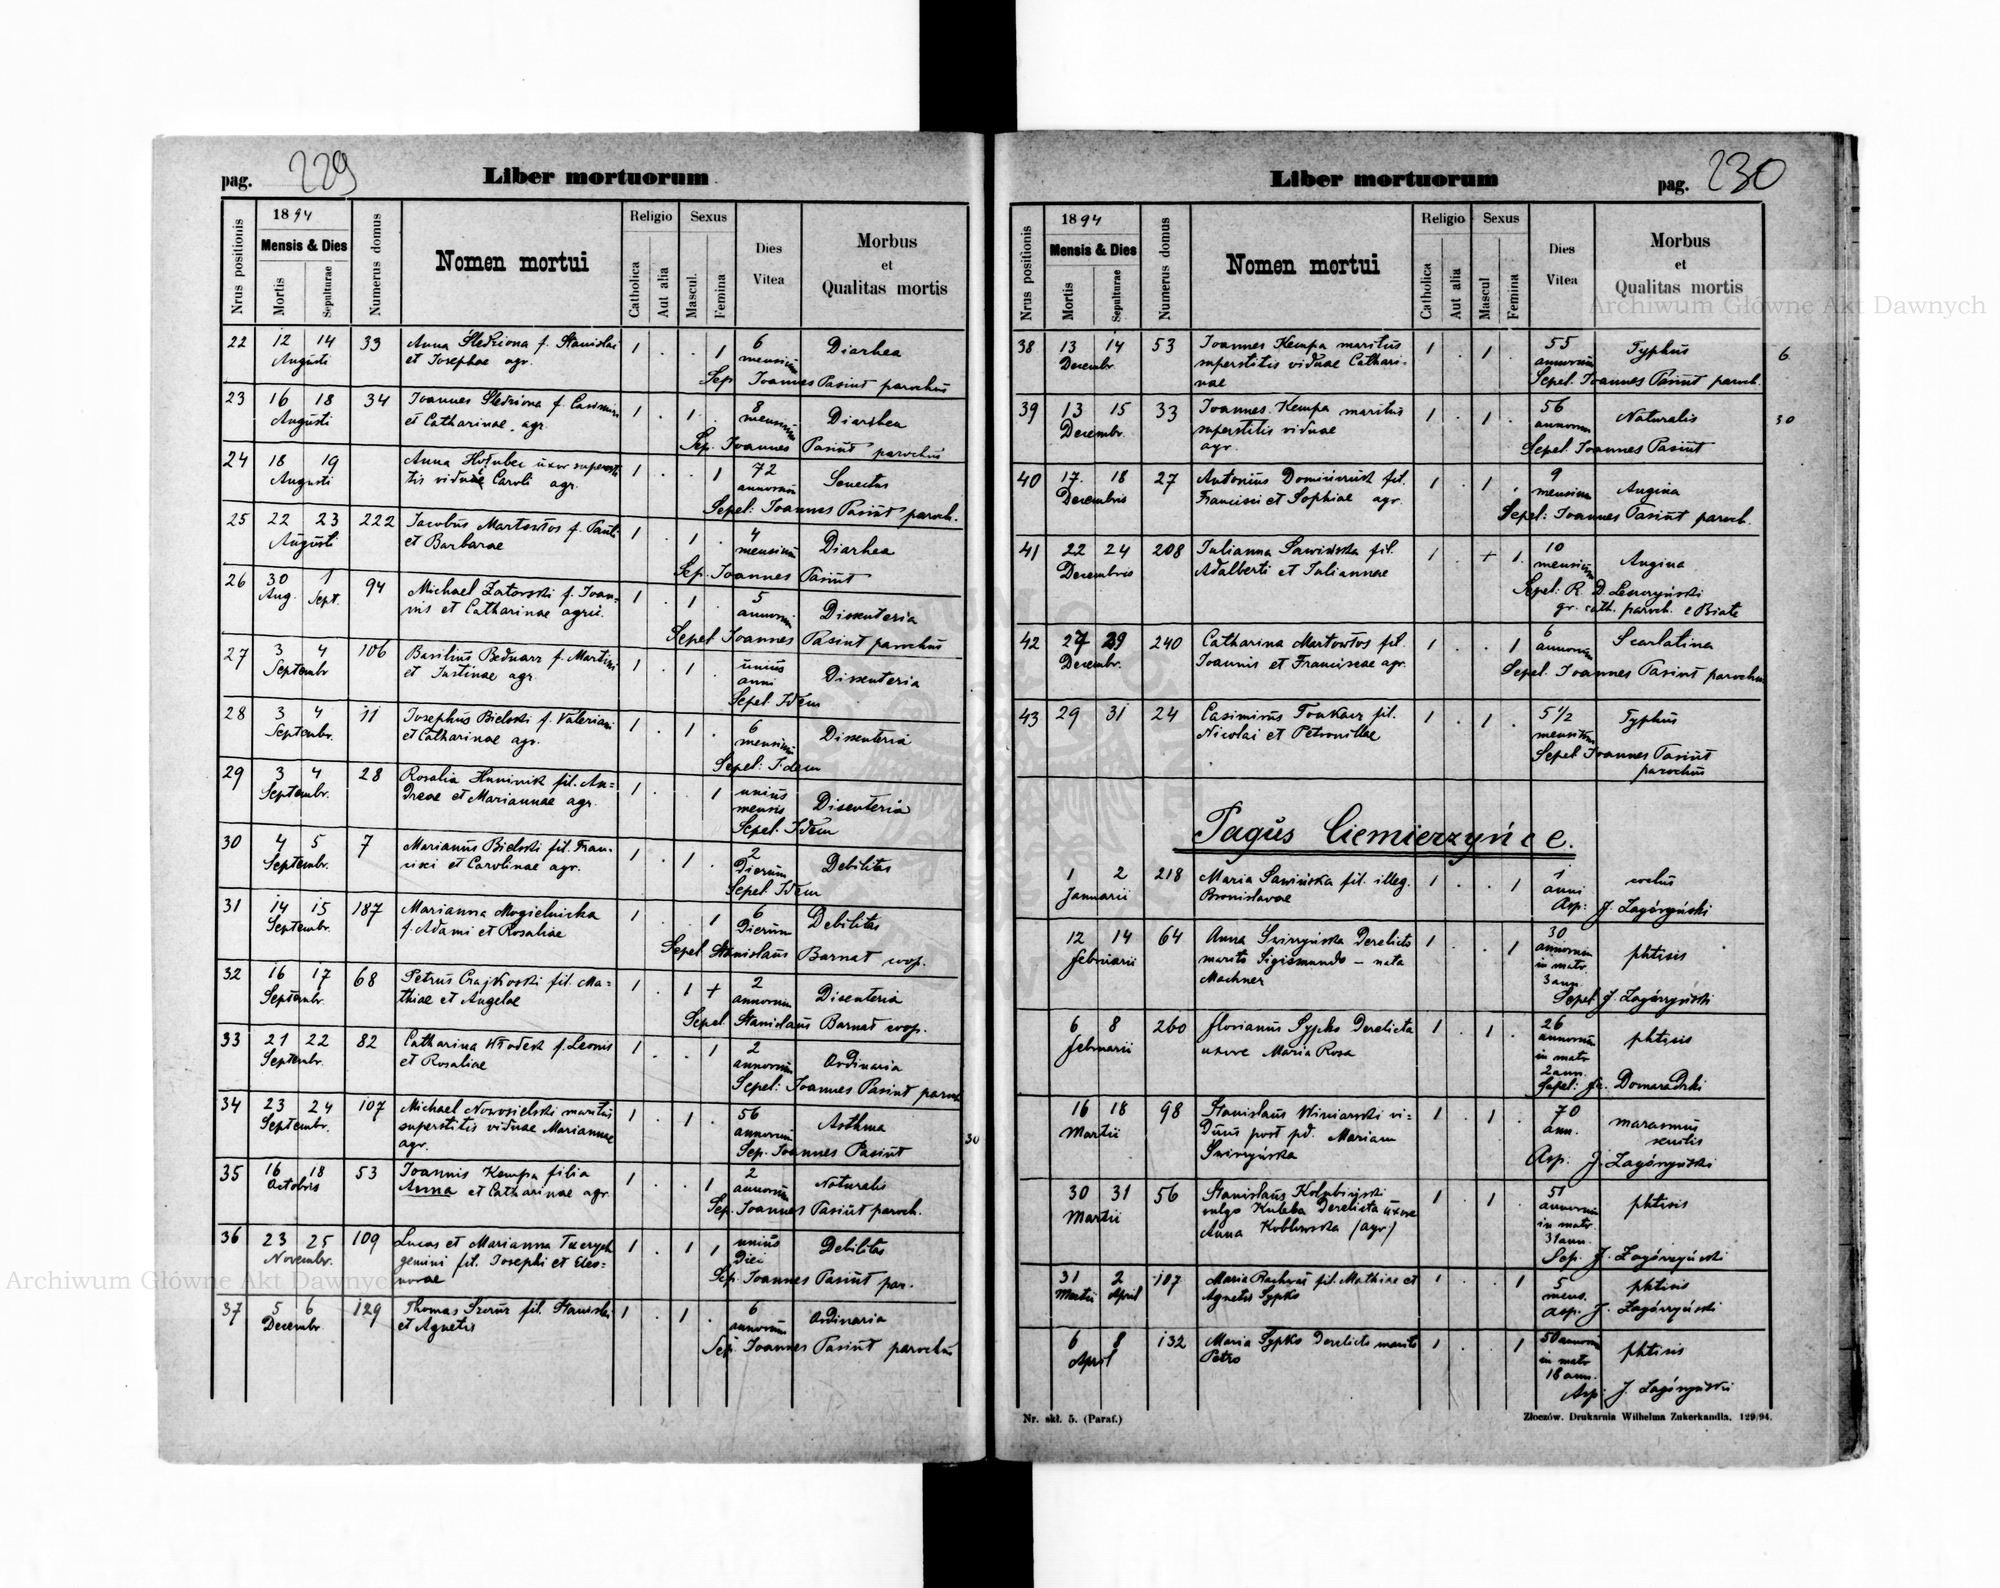 pag. 229
Liber mortuorum
Nrus positionis
1894
Mensis & Dies
Mortis
Sepulturae
Numerus domus
Nomen mortui
Religio
Catholica
Aut alia
Sexus
Mascul.
Femina
Dies
Vitea
Morbus
et
Qualitas mortis
22 12 14 33 Anna Śledziona f. Stanislai 1 . . 1 6 Diarhea
Augusti et Josephae agr. mensium
Sep Joannes Pasiut parochus
23 16 18 34 Joannes Śledziona f. Casimiri 1 . 1 . 8 Diarhea
Augusti et Catharinae agr. mensium
Sep. Joannes Pasiut parochus
24 18 19 Anna Hołubec uxor supersti 1 . . 1 72 Senectus
Augusti tis viduae Caroli agr. annorum
Sepel: Joannes Pasiut paroch.
25 22 23 222 Jacobus Martowłos f. Pauli 1 . 1 . 4 Diarhea
Augusti et Barbarae mensium
Sep. Joannes Pasiut
26 30 1 94 Michael Zatorski f. Joan- 1 . 1 . 5 Dissenteria
Aug. Sept. nis et Catharinae agric. annorum
Sepel Joannes Pasiut parochus
27 3 4 106 Basilius Bednarz f. Martini 1 . 1 . unius Dissenteria
Septembr et Justinae agr. anni
Sepel Idem
28 3 4 11 Josephus Bielski f. Valeriani 1 . 1 . 6 Dissenteria
Septembr. et Catharinae agr. mensium
Sepel: Idem
29 3 4 28 Rosalia Huminik fil. An= 1 . . 1 unius Disenteria
Septembr. dreae et Mariannae agr. mensis
Sepel. Idem
30 4 5 7 Marianus Bielski fil. Fran- 1 . 1 . 2 Debilitas
Septembr. cisci et Carolinae agr. Dierum
Sepel Idem
31 14 15 187 Marianna Mogielnicka 1 . . 1 6 Debilitas
Septembr. f. Adami et Rosaliae Dierum
Sepel Stanislaus Barnat coop.
32 16 17 68 Petrus Czajkoski fil. Ma= 1 . 1 + 2 Disenteria
Septembr. thiae et Angelae annorum
Sepel Stanislaus Barnat coop.
33 21 22 82 Catharina Włodek f. Leonis 1 . . 1 2 Ordinaria
Septembr. et Rosaliae annorum
Sepel: Joannes Pasiut paroch
34 23 24 107 Michael Nowosielski maritus 1 . 1 . 56 Asthma
Septembr. superstitis viduae Mariannae annorum
agr. Sep. Joannes Pasiut
30
35 16 18 53 Joannis Kempa filia 1 . . 1 2 Naturalis
Octobris Anna et Catharinae agr. annorum
Sep. Joannes Pasiut paroch.
36 23 25 109 Lucas et Marianna Tzerych 1 . 1 1 unius Debilitas
Novembr. gemini fil. Josephi et Eleo= Diei
norae Sep. Joannes Pasiut par.
37 5 6 129 Thomas Szczur fil. Stanislai 1 . 1 . 6 Ordinaria
Decembr. et Agnetis annorum
Sep. Joannes Pasiut parochus
Liber mortuorum
pag. 230
Nrus positionis
1894
Mensis & Dies
Mortis
Sepulturae
Numerus domus
Nomen mortui
Religio
Catholica
Aut alia
Sexus
Mascul
Femina
Dies
Vitea
Morbus
et
Qualitas mortis
38 13 14 53 Joannes Kempa maritus 1 . 1 . 55 Typhus 6
Decembr. superstitis viduae Cathari- annorum
nae Sepel. Joannes Pasiut paroch.
39 13 15 33 Joannes Kempa maritus 1 . 1 . 56 Naturalis 30
Decembr. superstitis viduae annorum
agr. Sepel Joannes Pasiut
40 17. 18 27 Antonius fil. 1 . 1 . 9 Angina
Decembris Francisci et Sophiae agr. mensium
Sepel: Joannes Pasiut paroch.
41 22 24 208 Julianna Sawińska fil. 1 . + 1. 10 Angina
Decembris Adalberti et Juliannae mensium
Sepel: R. D. Leszczyński
gr. cath. paroch. e Białe
42 27 29 240 Catharina Martowłos fil. 1 . . 1 6 Scarlatina
Decembr. Joannis et Franciscae agr. annorum
Sepel. Joannes Pasiut parochus
43 29 31 24 Casimirus Tonkacz fil. 1 . 1 . 5 1/2 Typhus
Nicolai et Petronillae mensium
Sepel Joannes Pasiut
parochus
Pagus Ciemierzyńce.
1 2 218 Maria Sawińska fil. illeg. 1 . . 1 1
Januarii Bronislavae anni
Asp: J. Zagórzyński
12 14 64 Anna Świrzyńska derelicto 1 . . 1 30 phtisis
februarii marito Sigismundo – nata annorum
Machner in matr.
3 ann.
Sepel J. Zagórzyński
6 8 260 florianus Sypko derelicta 1 . 1 . 26 phtisis
februarii uxore Maria Rosa annorum
in matr
2 ann.
Sepel: Domaradzki
16 18 98 Stanislaus Winiarski vi- 1 . 1 . 70 marasmus
Martii duus post pd. Mariam ann. senilis
Świrzyńska Asp: J. Zagórzyński
30 31 56 Stanislaus 1 . 1 51 phtisis
Martii vulgo Kuleba derelicta uxore annorum
Anna Koblewska (agr.) in matr.
31 ann.
Sep. J. Zagórzyński
31 2 107 Maria Rachwał fil. Mathiae et 1 . . 1 5 phtisis
Martii April Agnetis Sypko mens.
asp. J. Zagórzyński
6 8 132 Maria Sypko derelicto marito 1 . . 1 50 annorum phtisis
April Petro in matr
18 ann.
Asp: J. Zagórzyński
Nr. skł. 5. (Paraf.)
Złoczów. Drukarnia Wilhelma Zukerkandla. 129/94.
Archiwum Główne Akt Dawnych
Archiwum Główne Akt Dawnych